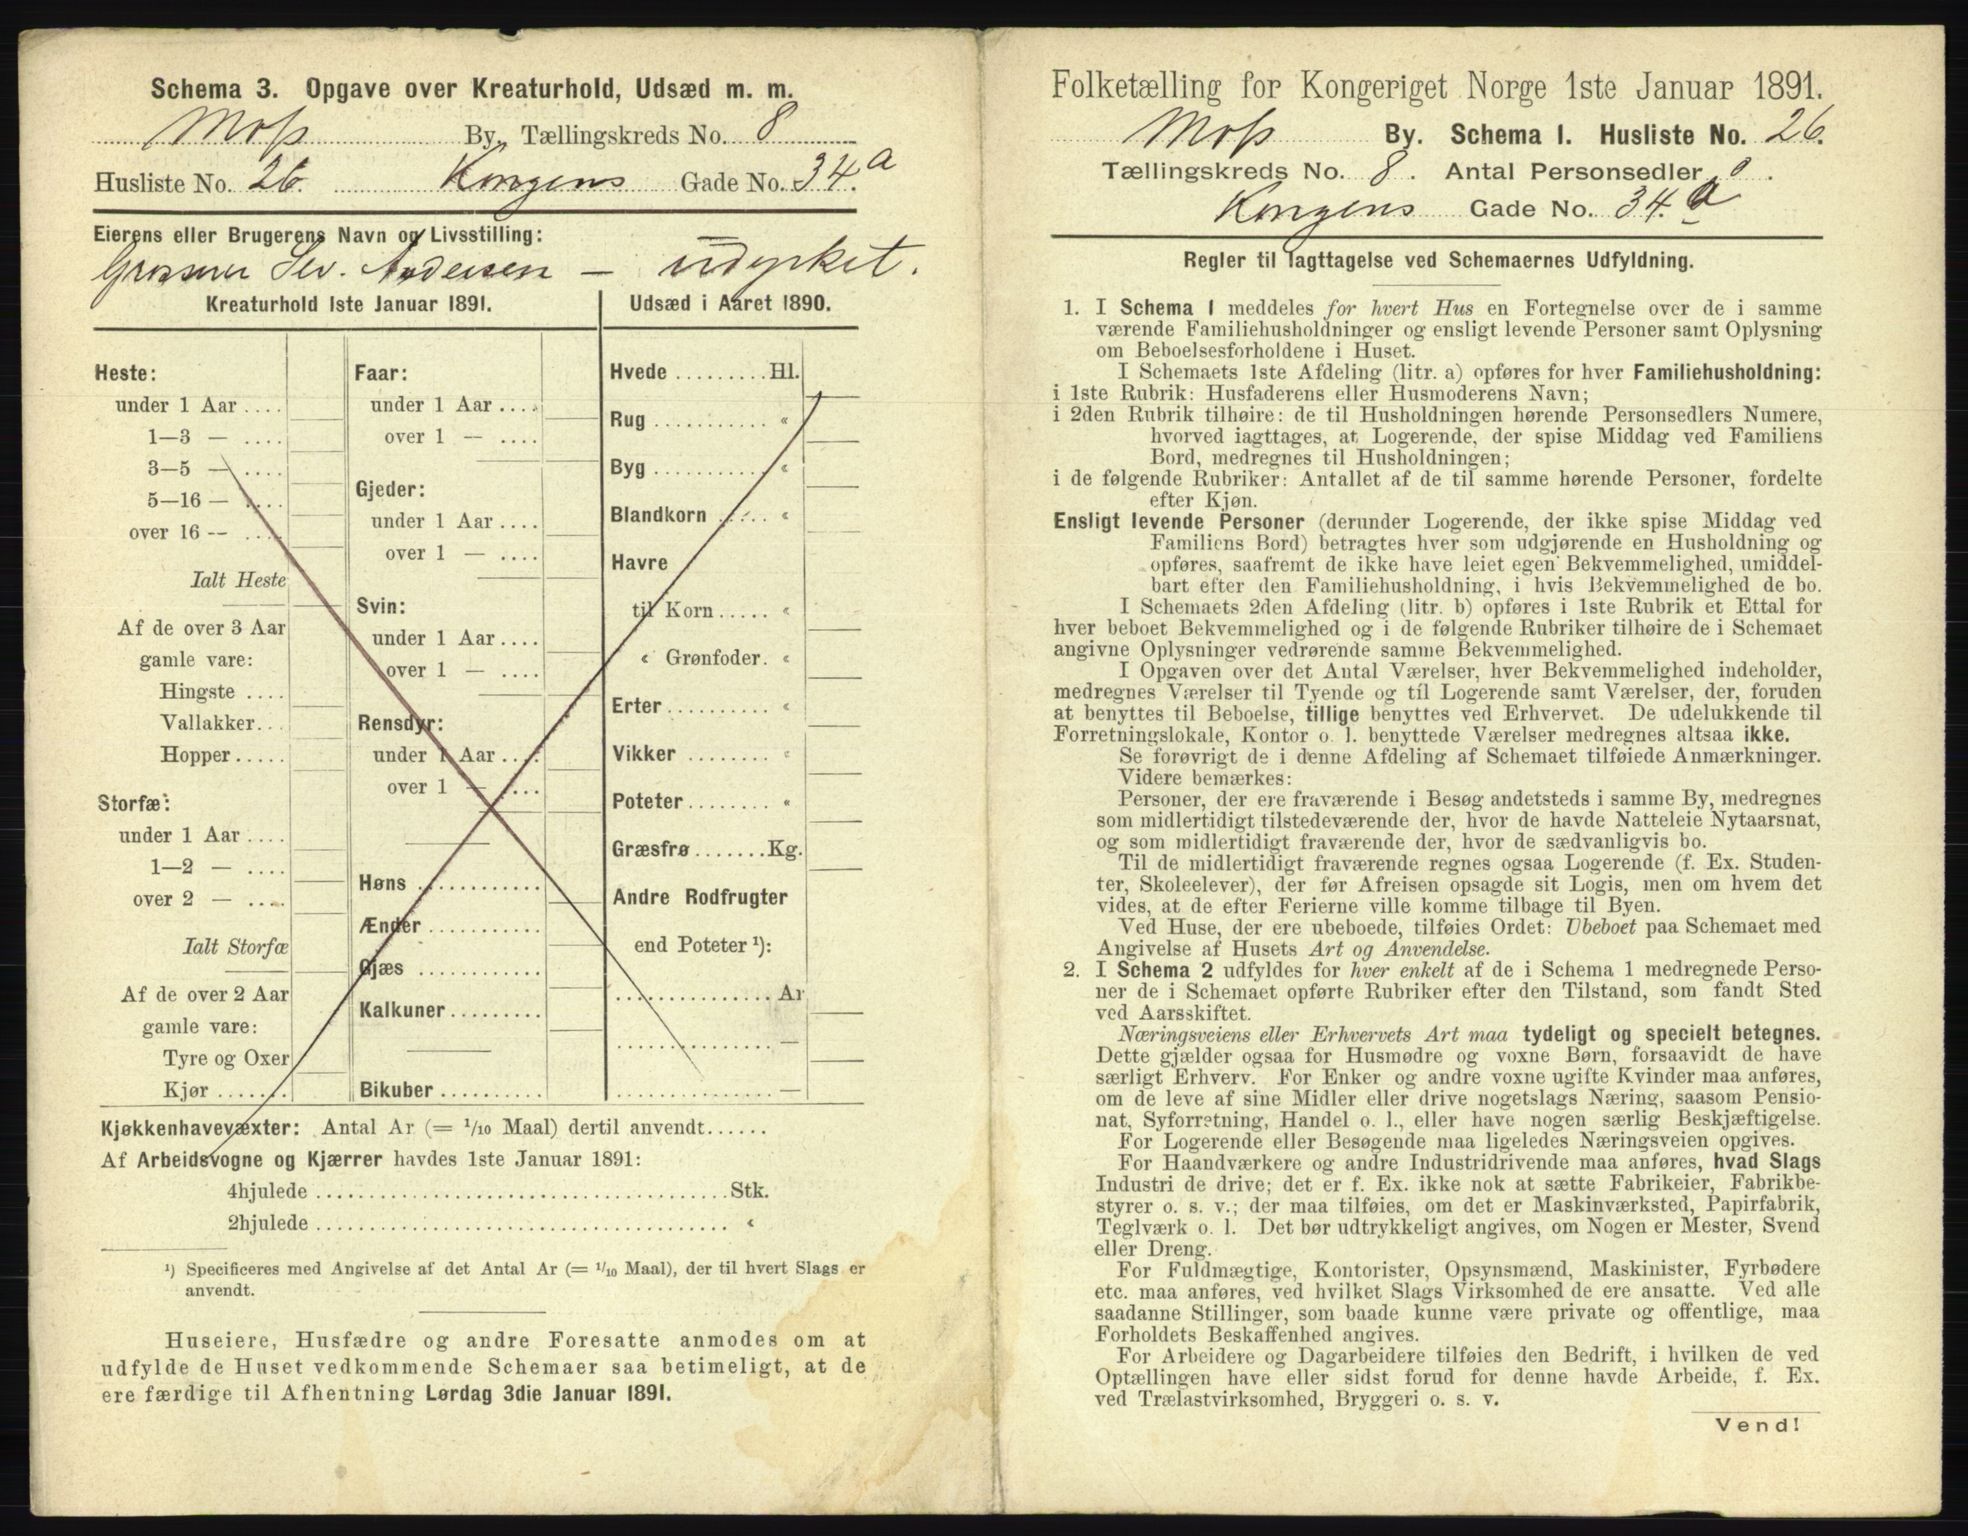 Schema 3. Opgave over Kreaturhold, Udsæd m. m.
Moss By, Tællingskreds No. 8
Husliste No. 26. Kongens Gade No. 34.a
Eierens eller Brugerens Navn og Livsstilling:
Grosserer Andersen — udyrket.
Kreaturhold 1ste Januar 1891.
Heste:
under 1 Aar ....
1—3 — ....
3—5 — ....
5—16 — ....
over 16 — ....
Ialt Heste
Af de over 3 Aar
gamle vare:
Hingste ....
Vallakker...
Hopper.....
Storfæ:
under 1 Aar ....
1—2 — ....
over 2 — ....
Ialt Storfæ
Af de over 2 Aar
gamle vare:
Tyre og Oxer
Kjør .......
Faar:
under 1 Aar ....
over 1 — ....
Gjeder:
under 1 Aar ....
over 1 — ....
Svin:
under 1 Aar ....
over 1 — ....
Rensdyr:
under 1 Aar ....
over 1 — ....
Høns ............
Ænder ...........
Gjæs ............
Kalkuner.........
Bikuber ..........
Udsæd i Aaret 1890.
Hvede .........Hl.
Rug ........... «
Byg ........... «
Blandkorn ..... «
Havre
til Korn..... «
« Grønfoder. «
Erter .......... «
Vikker ......... «
Poteter......... «
Græsfrø.......Kg.
Andre Rodfrugter
end Poteter ¹):
............... Ar
............... —
............... —
Kjøkkenhavevæxter: Antal Ar (= 1/10 Maal) dertil anvendt......
Af Arbeidsvogne og Kjærrer havdes 1ste Januar 1891:
4hjulede ........................................Stk.
2hjulede ........................................ «
¹) Specificeres med Angivelse af det Antal Ar (= 1/10 Maal), der til hvert Slags er
anvendt.
Huseiere, Husfædre og andre Foresatte anmodes om at
udfylde de Huset vedkommende Schemaer saa betimeligt, at de
ere færdige til Afhentning Lørdag 3die Januar 1891.
Folketælling for Kongeriget Norge 1ste Januar 1891.
Moss By. Schema 1. Husliste No. 26.
Tællingskreds No. 8. Antal Personsedler 0.
Kongens Gade No. 34.a
Regler til Iagttagelse ved Schemaernes Udfyldning.
1. I Schema 1 meddeles for hvert Hus en Fortegnelse over de i samme
værende Familiehusholdninger og ensligt levende Personer samt Oplysning
om Beboelsesforholdene i Huset.
I Schemaets 1ste Afdeling (litr. a) opføres for hver Familiehusholdning:
i 1ste Rubrik: Husfaderens eller Husmoderens Navn;
i 2den Rubrik tilhøire: de til Husholdningen hørende Personsedlers Numere,
hvorved iagttages, at Logerende, der spise Middag ved Familiens
Bord, medregnes til Husholdningen;
i de følgende Rubriker: Antallet af de til samme hørende Personer, fordelte
efter Kjøn.
Ensligt levende Personer (derunder Logerende, der ikke spise Middag ved
Familiens Bord) betragtes hver som udgjørende en Husholdning og
opføres, saafremt de ikke have leiet egen Bekvemmelighed, umiddel-
bart efter den Familiehusholdning, i hvis Bekvemmelighed de bo.
I Schemaets 2den Afdeling (litr. b) opføres i 1ste Rubrik et Ettal for
hver beboet Bekvemmelighed og i de følgende Rubriker tilhøire de i Schemaet
angivne Oplysninger vedrørende samme Bekvemmelighed.
I Opgaven over det Antal Værelser, hver Bekvemmelighed indeholder,
medregnes Værelser til Tyende og til Logerende samt Værelser, der, foruden
at benyttes til Beboelse, tillige benyttes ved Erhvervet. De udelukkende til
Forretningslokale, Kontor o. l. benyttede Værelser medregnes altsaa ikke.
Se forøvrigt de i denne Afdeling af Schemaet tilføiede Anmærkninger.
Videre bemærkes:
Personer, der ere fraværende i Besøg andetsteds i samme By, medregnes
som midlertidigt tilstedeværende der, hvor de havde Natteleie Nytaarsnat,
og som midlertidigt fraværende der, hvor de sædvanligvis bo.
Til de midlertidigt fraværende regnes ogsaa Logerende (f. Ex. Studen-
ter, Skoleelever), der før Afreisen opsagde sit Logis, men om hvem det
vides, at de efter Ferierne ville komme tilbage til Byen.
Ved Huse, der ere ubeboede, tilføies Ordet: Ubeboet paa Schemaet med
Angivelse af Husets Art og Anvendelse.
2. I Schema 2 udfyldes for hver enkelt af de i Schema 1 medregnede Perso-
ner de i Schemaet opførte Rubriker efter den Tilstand, som fandt Sted
ved Aarsskiftet.
Næringsveiens eller Erhvervets Art maa tydeligt og specielt betegnes.
Dette gjælder ogsaa for Husmødre og voxne Børn, forsaavidt de have
særligt Erhverv. For Enker og andre voxne ugifte Kvinder maa anføres,
om de leve af sine Midler eller drive nogetslags Næring, saasom Pensio-
nat, Syforretning, Handel o. l., eller have nogen særlig Beskjæftigelse.
For Logerende eller Besøgende maa ligeledes Næringsveien opgives.
For Haandværkere og andre Industridrivende maa anføres, hvad Slags
Industri de drive; det er f. Ex. ikke nok at sætte Fabrikeier, Fabrikbe-
styrer o. s. v.; der maa tilføies, om det er Maskinværksted, Papirfabrik,
Teglværk o. l. Det bør udtrykkeligt angives, om Nogen er Mester, Svend
eller Dreng.
For Fuldmægtige, Kontorister, Opsynsmænd, Maskinister, Fyrbødere
etc. maa anføres, ved hvilket Slags Virksomhed de ere ansatte. Ved alle
saadanne Stillinger, som baade kunne være private og offentlige, maa
Forholdets Beskaffenhed angives.
For Arbeidere og Dagarbeidere tilføies den Bedrift, i hvilken de ved
Optællingen have eller sidst forud for denne havde Arbeide, f. Ex.
ved Trælastvirksomhed, Bryggeri o. s. v.
Vend!